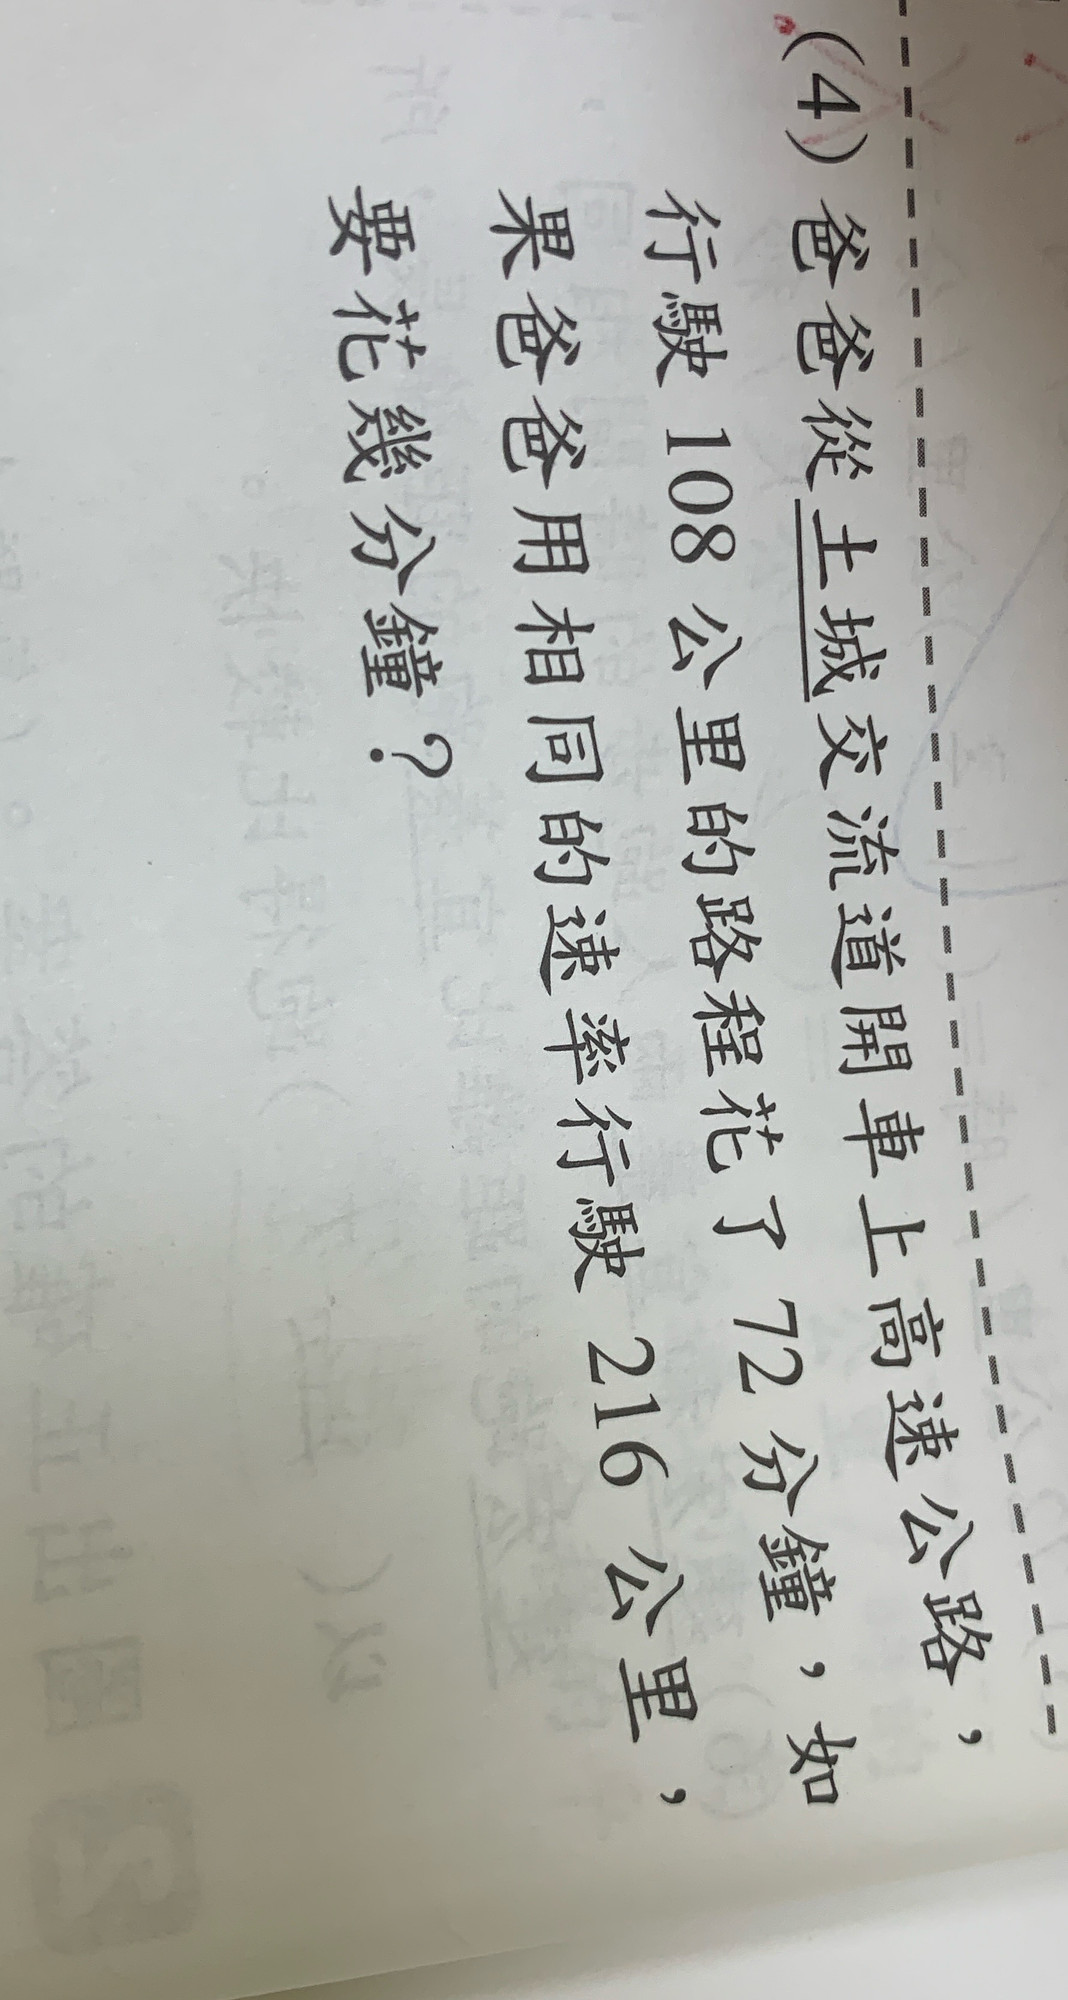 (4)爸爸從土城交流道開車上高速公路，
行駛 108 公里的路程花了 72 分鐘，如
果爸爸用相同的速率行駛 216 公里，
要花幾分鐘？